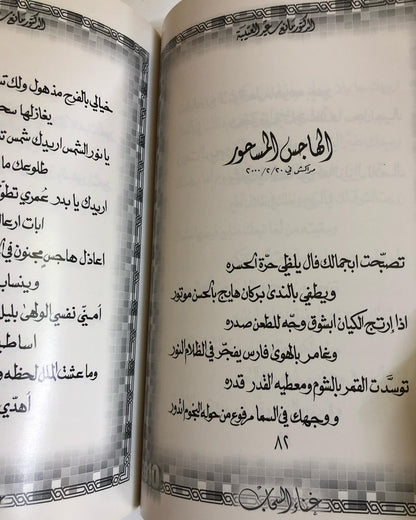 الدكتور مانع سعيد العتيبة
الهاجس المسحور
مراكش في ٢٠٠٠/٢/٢٠
تصبّحت ابجمالك فال يلظي حرّة الحسره
ويطفي بالندى بركان هايج بالحسن موتور
اذا ارتج الكيان ابشوق وجّه للطعن صدره
وغامر بالهوى فارس يفجّر في الظلام النور
توسّدت القمر بالشوم ومعطيه القدر قدره
ووجهك في السما مرفوع من حوله النجوم اتدور
٨٢
غناء السحاب
الدكتور مانع سعيد العتيبة
خيالي بالفرح مذهول ولك
يغازلها
يا نور الشمس اريدك شمس
طلوعك ما
اريدك يا بدر عمري
ابات
اعاذل هاجس مجنون في
وينساب
أمنّي نفسي الولهى بليل
اساطير
وما عشت الملل لحظه
أهدّي